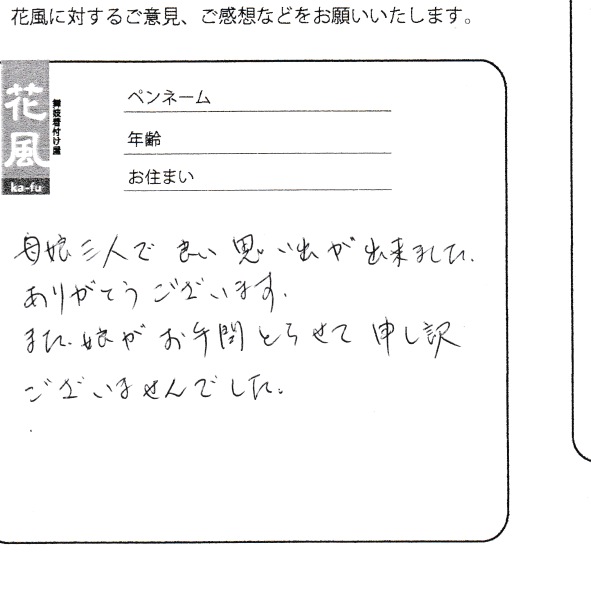 花風に対するご意見、ご感想などをお願いいたします。
花風
舞妓着付け屋
ka-fu
ペンネーム
年齢
お住まい
母娘三人で良い思い出が出来ました。
ありがとうございます。
また、娘がお手間とらせて申し訳
ございませんでした。